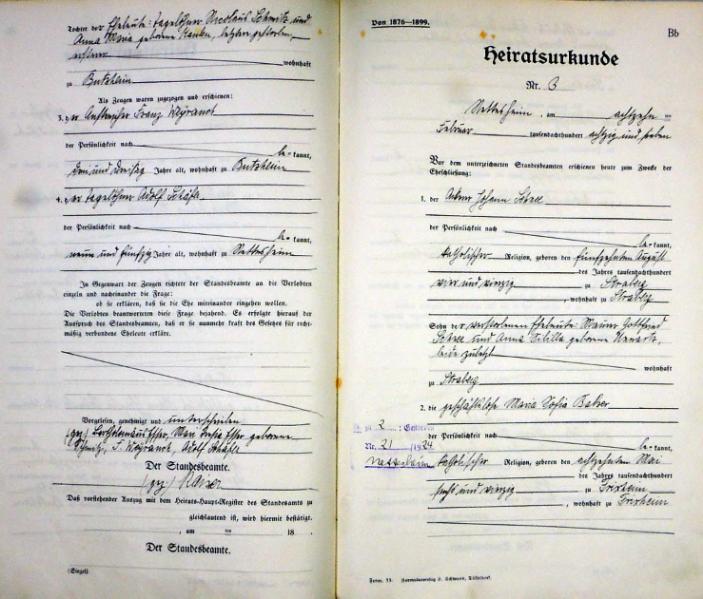 Tochter der Eheleute: Tagelöhner Nicolaus Schmitz und
Anna Maria geborene letztere gestorben,
ersterer wohnhaft
zu Butzheim
Als Zeugen waren zugezogen und erschienen:
3. der Franz Weyrandt
der Persönlichkeit nach
be- kannt,
drei und dreißig Jahre alt, wohnhaft zu Butzheim
4. der Tagelöhner Adolf Schäfer
der Persönlichkeit nach
be- kannt,
neun und fünfzig Jahre alt, wohnhaft zu Nettesheim
In Gegenwart der Zeugen richtete der Standesbeamte an die Verlobten
einzeln und nacheinander die Frage:
ob sie erklären, daß sie die Ehe miteinander eingehen wollen.
Die Verlobten beantworteten diese Frage bejahend. Es erfolgte hierauf der
Ausspruch des Standesbeamten, daß er sie nunmehr kraft des Gesetzes für recht-
mäßig verbundene Eheleute erkläre.
Vorgelesen, genehmigt und unterschrieben
(gz) Bartholomäus Esser, Maria Sofia Esser geborene
Schmitz, F. Weyrandt, Adolf Schäfer
Der Standesbeamte.
(gz)
Daß vorstehender Auszug mit dem Heirats-Haupt-Register des Standesamts zu
gleichlautend ist, wird hiermit bestätigt.
, am ten 18 .
Der Standesbeamte.
(Siegel)
Von 1876—1899.
Bb
Heiratsurkunde
Nr. 3
Nettesheim, am achtzehn ten
Februar tausendachthundert achtzig und sieben
Vor dem unterzeichneten Standesbeamten erschienen heute zum Zwecke der
Eheschließung:
1. der Ackerer Johann
der Persönlichkeit nach
be- kannt,
katholischer Religion, geboren den fünfzehnten August
des Jahres tausendachthundert
vier und vierzig zu Straberg
, wohnhaft zu Straberg
Sohn der verstorbenen Eheleute Gottfried
und Anna Sibilla geborene
beide zuletzt
wohnhaft
zu Straberg
2. die geschäftslose Maria Sofia
der Persönlichkeit nach
be- kannt,
katholischer Religion, geboren den achtzehnten Mai
des Jahres tausendachthundert
sechs und vierzig zu Frixheim
, wohnhaft zu Frixheim
2
Nr. 21 /1924
Nettesheim
Form. 11.